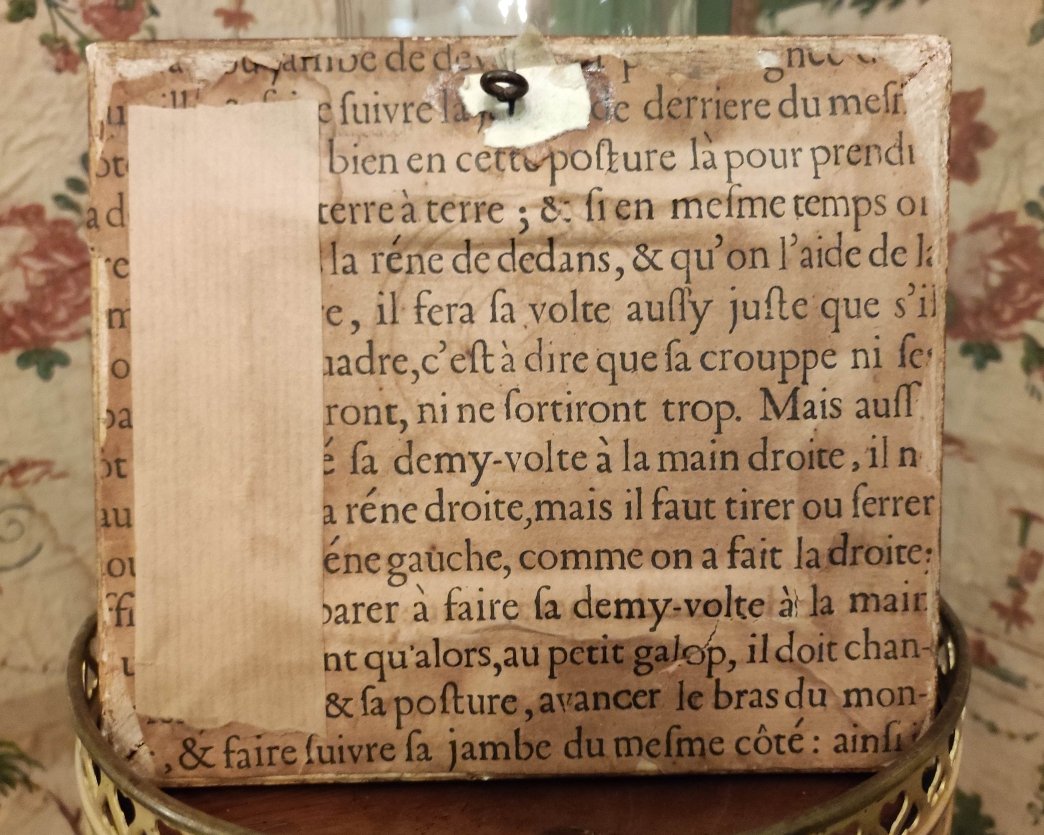 jambe de
ſuivre la de derriere du meſ
bien en cette poſture là pour prend
terre à terre ; & ſi en meſme temps
la réne de dedans, & qu'on l'aide de
il fera ſa volte auſſy juſte que s'il
c'eſt à dire que ſa crouppe ni
ront, ni ne ſortiront trop. Mais auſſ
ſa demy-volte à la main droite, il
réne droite, mais il faut tirer ou ſerrer
éne gauche, comme on a fait la droite:
parer à faire ſa demy-volte à la main
nt qu'alors, au petit galop, il doit chan-
& ſa poſture, avancer le bras du mon-
, & faire ſuivre ſa jambe du meſme côté: ainſi